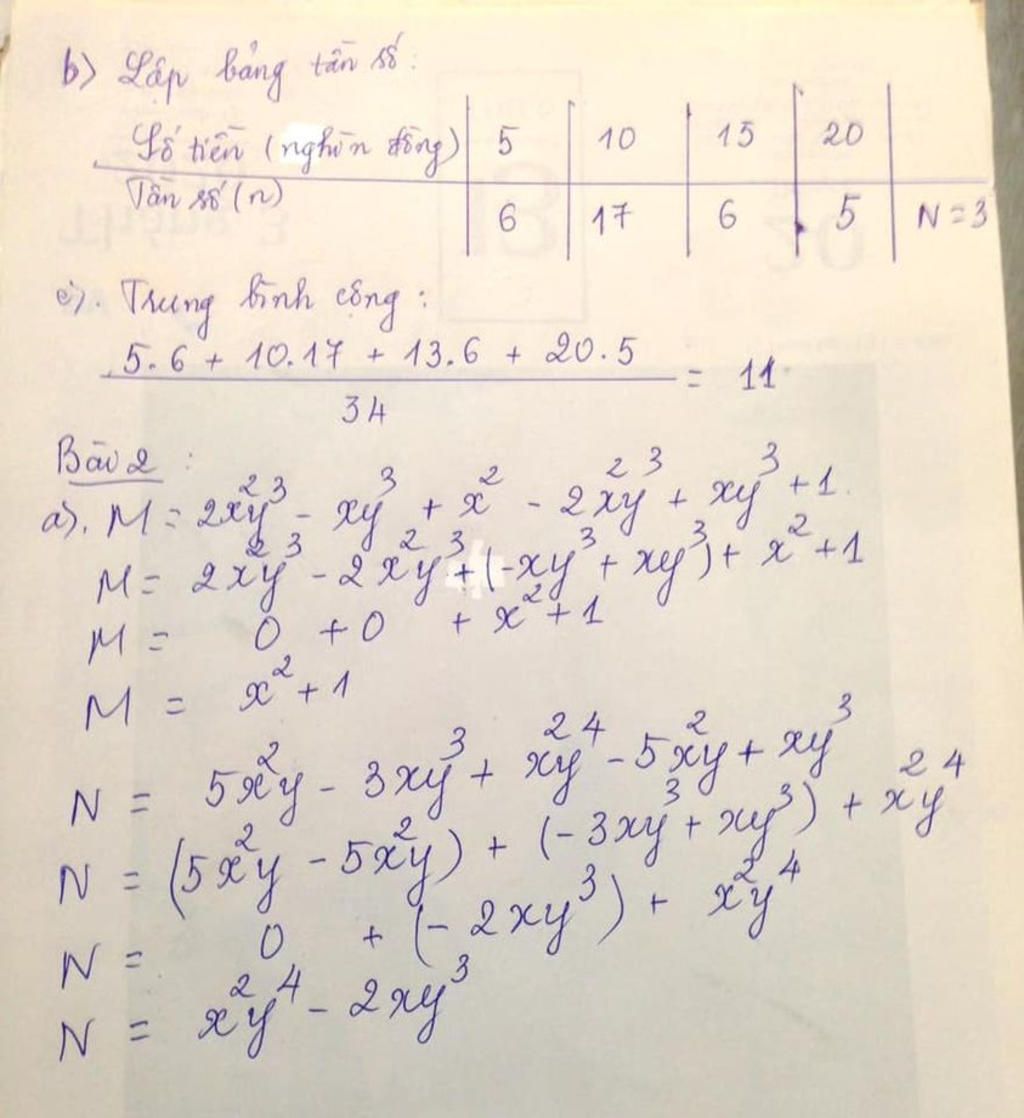 b) Lập bảng tần số:
Số tiền (nghìn đồng) | 5 | 10 | 15 | 20 |
Tần số (n) | 6 | 17 | 6 | 5 | N = 3
c). Trung bình cộng:
5.6 + 10.17 + 13.6 + 20.5
= 11
34
Bài 2:
a). M = 2x²y³ - xy³ + x² - 2x²y³ + xy³ + 1.
M = 2x²y³ - 2x²y³ + (-xy³ + xy³) + x² + 1
M = 0 + 0 + x² + 1
M = x² + 1
N = 5x²y - 3xy³ + x²y⁴ - 5x²y + xy³
N = (5x²y - 5x²y) + (-3xy³ + xy³) + x²y⁴
N = 0 + (-2xy³) + x²y⁴
N = x²y⁴ - 2xy³